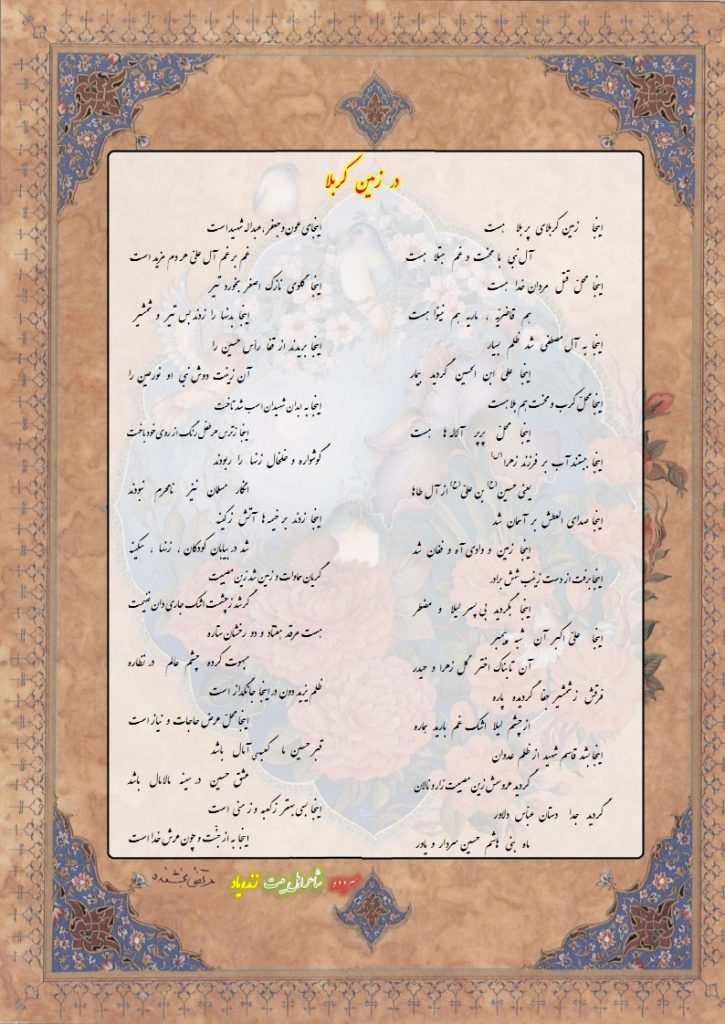 در زمین کربلا
اینجا زمین کربلای پر بلا هست
آل نبی با محنت و غم مبتلا هست
اینجا محل قتل مردان خدا هست
هم قاضریّه ، ماریه هم نینوا هست
اینجا به آل مصطفی شد ظلم بسیار
اینجا علی ابن الحسین گردید بیمار
اینجا محل کرب و محنت هم بلا هست
اینجا محل پرپر آلاله ها هست
اینجا ببستند آب بر فرزند زهرا(س)
یعنی حسین(ع) بن علی(ع) از آل طاها
اینجا صدای العطش بر آسمان شد
اینجا زمین و وادی آه و فغان شد
اینجا برفت از دست زینب شش برادر
اینجا بگردید بی پسر لیلا و مضطر
اینجا علی اکبر آن شبه پیمبر
آن تابناک اختر گل زهرا و حیدر
فرقش ز شمشیر جفا گردیده پاره
از چشم لیلا اشک غم بارید هماره
اینجا بشد قاسم شهید از ظلم عدوان
گردید عروسش زین مصیبت زار و نالان
گردید جدا دستان عبّاس دلاور
ماه بنی هاشم حسین سردار و یاور
اینجای عون و جعفر، عبداله شهید است
غم بر غم آل علی هر دم مزید است
اینجا گلوی نازک اصغر بخورد تیر
اینجا بدنها را زدند بس تیر و شمشیر
اینجا بریدند از قفا رأس حسین را
آن زینت دوش نبی او نور عین را
اینجا به ابدان شهیدان اسب شد تاخت
اینجا ز ترس هر طفل رنگ از روی خود باخت
گوشواره و خلخال زنها را ربودند
انگار مسلمان نیز نامحرم نبودند
اینجا زدند بر خیمه ها آتش ز کینه
شد در بیابان کودکان ، زنها ، سکینه
گریان سماوات و زمین شد زین مصیبت
گر شد ز چشمت اشک جاری دان غنیمت
هست مرقد هفتاد و دو رخشان ستاره
مبهوت کرده چشم عالم در نظاره
ظلم یزید دون در اینجا جانگداز است
اینجا محل عرض حاجات و نیاز است
قبر حسین ما کعبهی آمال باشد
عشق حسین در سینه مالامال باشد
اینجا بسی بهتر ز کعبه و ز منی است
اینجا به از جنّت و چون عرش خدا است
سروده شاعر اهل بیت زنده یاد